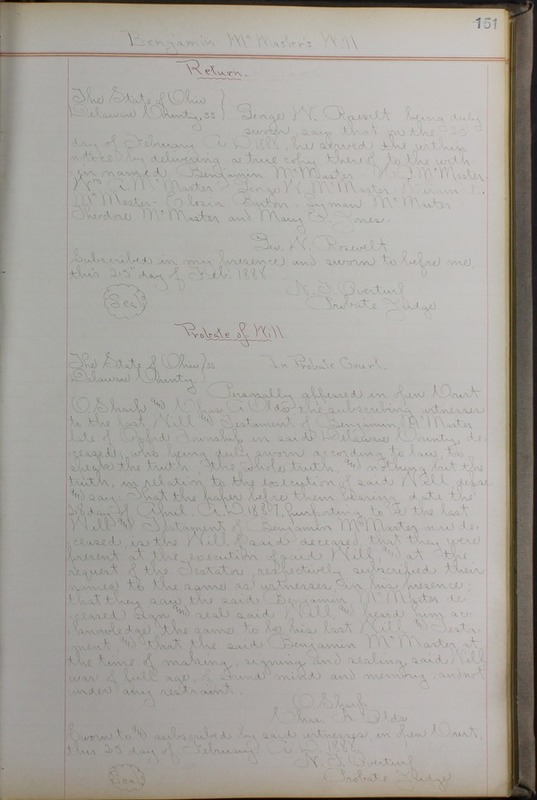 151
Benjamin McMaster's Will
Return.
The State of Ohio
Delaware County, ss } George W. Rosevelt being duly
sworn, says that on the 25"
day of February A.D. 1888, he served the within
notice by delivering a true copy thereof to the with
in named Benjamin McMaster McMaster
McMaster George W. McMaster
McMaster Lyman McMaster
Theodore McMaster and Mary Jones.
Geo. W. Rosevelt
Subscribed in my presence and sworn to before me,
this 25" day of Feb. 1888
N. F. Overturf
Seal
Probate Judge
Probate of Will.
The State of Ohio } ss In Probate Court.
Delaware County
Personally appeared in open Court
O Sharp and Chas. A. Olds the subscribing witnesses
to the last Will and Testament of Benjamin McMaster
late of Township in said Delaware County, de-
ceased, who being duly sworn according to law, to
speak the truth, the whole truth, and nothing but the
truth, in relation to the execution of said Will, depose
and say: That the paper before them bearing date the
28 day of April A.D. 1887, purporting to be the last
Will and Testament of Benjamin McMaster now de-
ceased, is the Will of said deceased, that they were
present at the execution of said Will, and at the
request of the Testator, respectively subscribed their
names to the same as witnesses in his presence;
that they saw the said Benjamin McMaster de-
ceased sign and seal said Will and heard him ac-
knowledge the same to be his last Will and Testa-
ment, and that the said Benjamin McMaster, at
the time of making, signing and sealing said Will
was of full age, of sound mind and memory, and not
under any restraint.
O Sharp
Chas. A. Olds
Sworn to and subscribed by said witnesses, in open Court,
this 25 day of February A.D. 1888
N. F. Overturf
Seal
Probate Judge